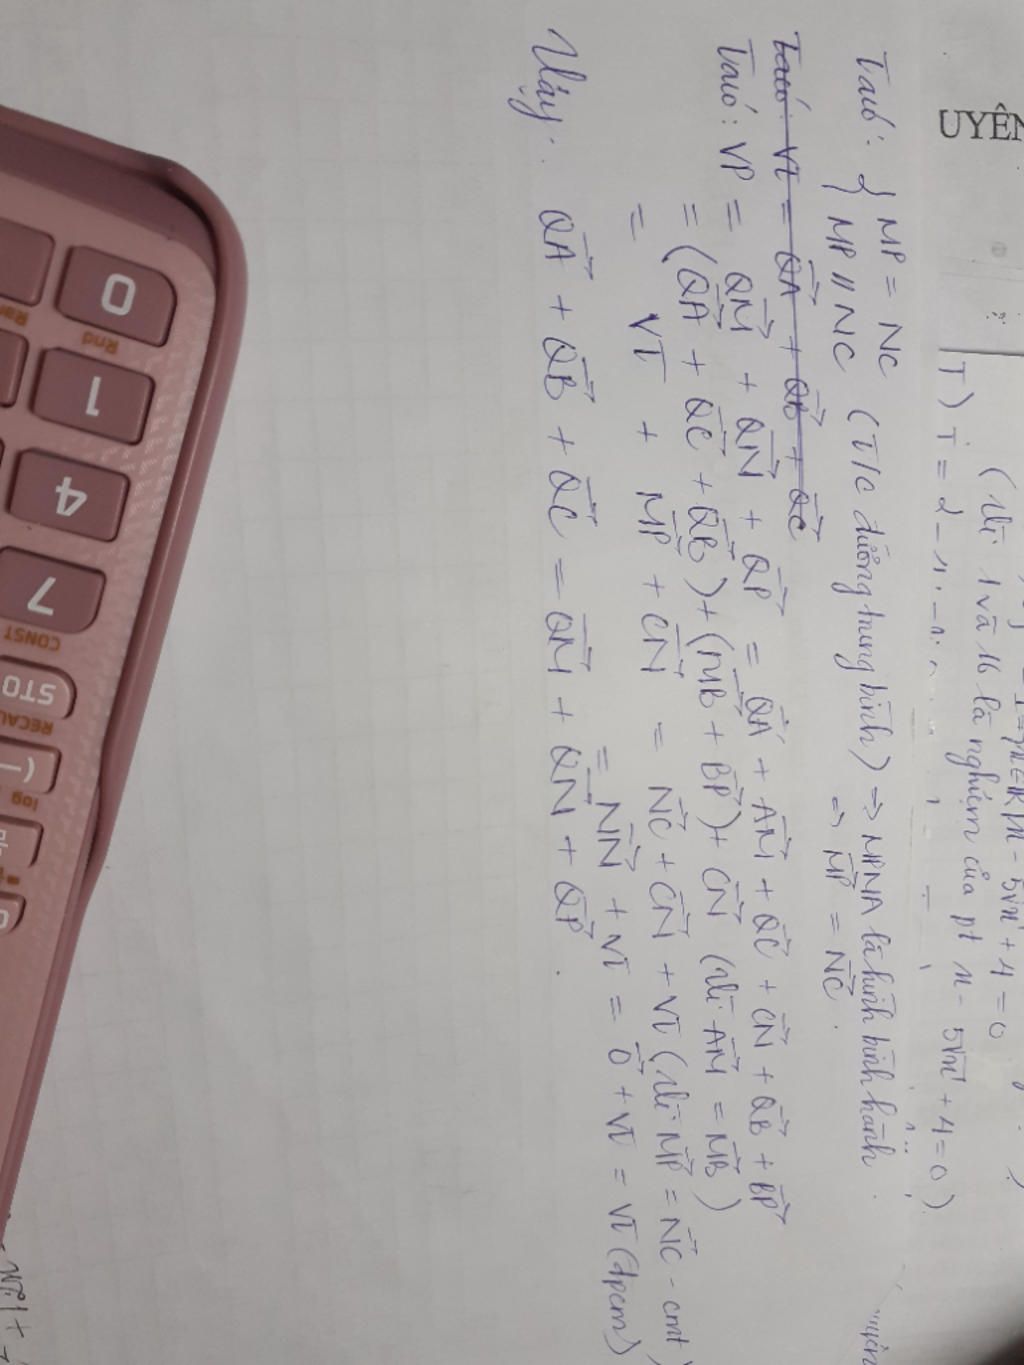 UYÊN
T) T = 2
(Vì 1 và 16 là nghiệm của pt x - 5√x + 4 = 0)
Ta có: { MP = NC
MP // NC (T/c đường trung bình) => MPNA là hình bình hành.
=> MP = NC.
Ta có: VT = QA + QB + QC
Ta có: VP = QM + QN + QP = QA + AM + QC + CN + QB + BP
= (QA + QC + QB) + (MB + BP) + CN (Vì AM = MB)
= VT + MP + CN = NC + CN + VT (Vì MP = NC - cmt)
= NN + VT = 0 + VT = VT (đpcm)
Vậy: QA + QB + QC = QM + QN + QP.
0
1
4
7
Rnd
Ran
CONST
STO
RECAL
(-)
log